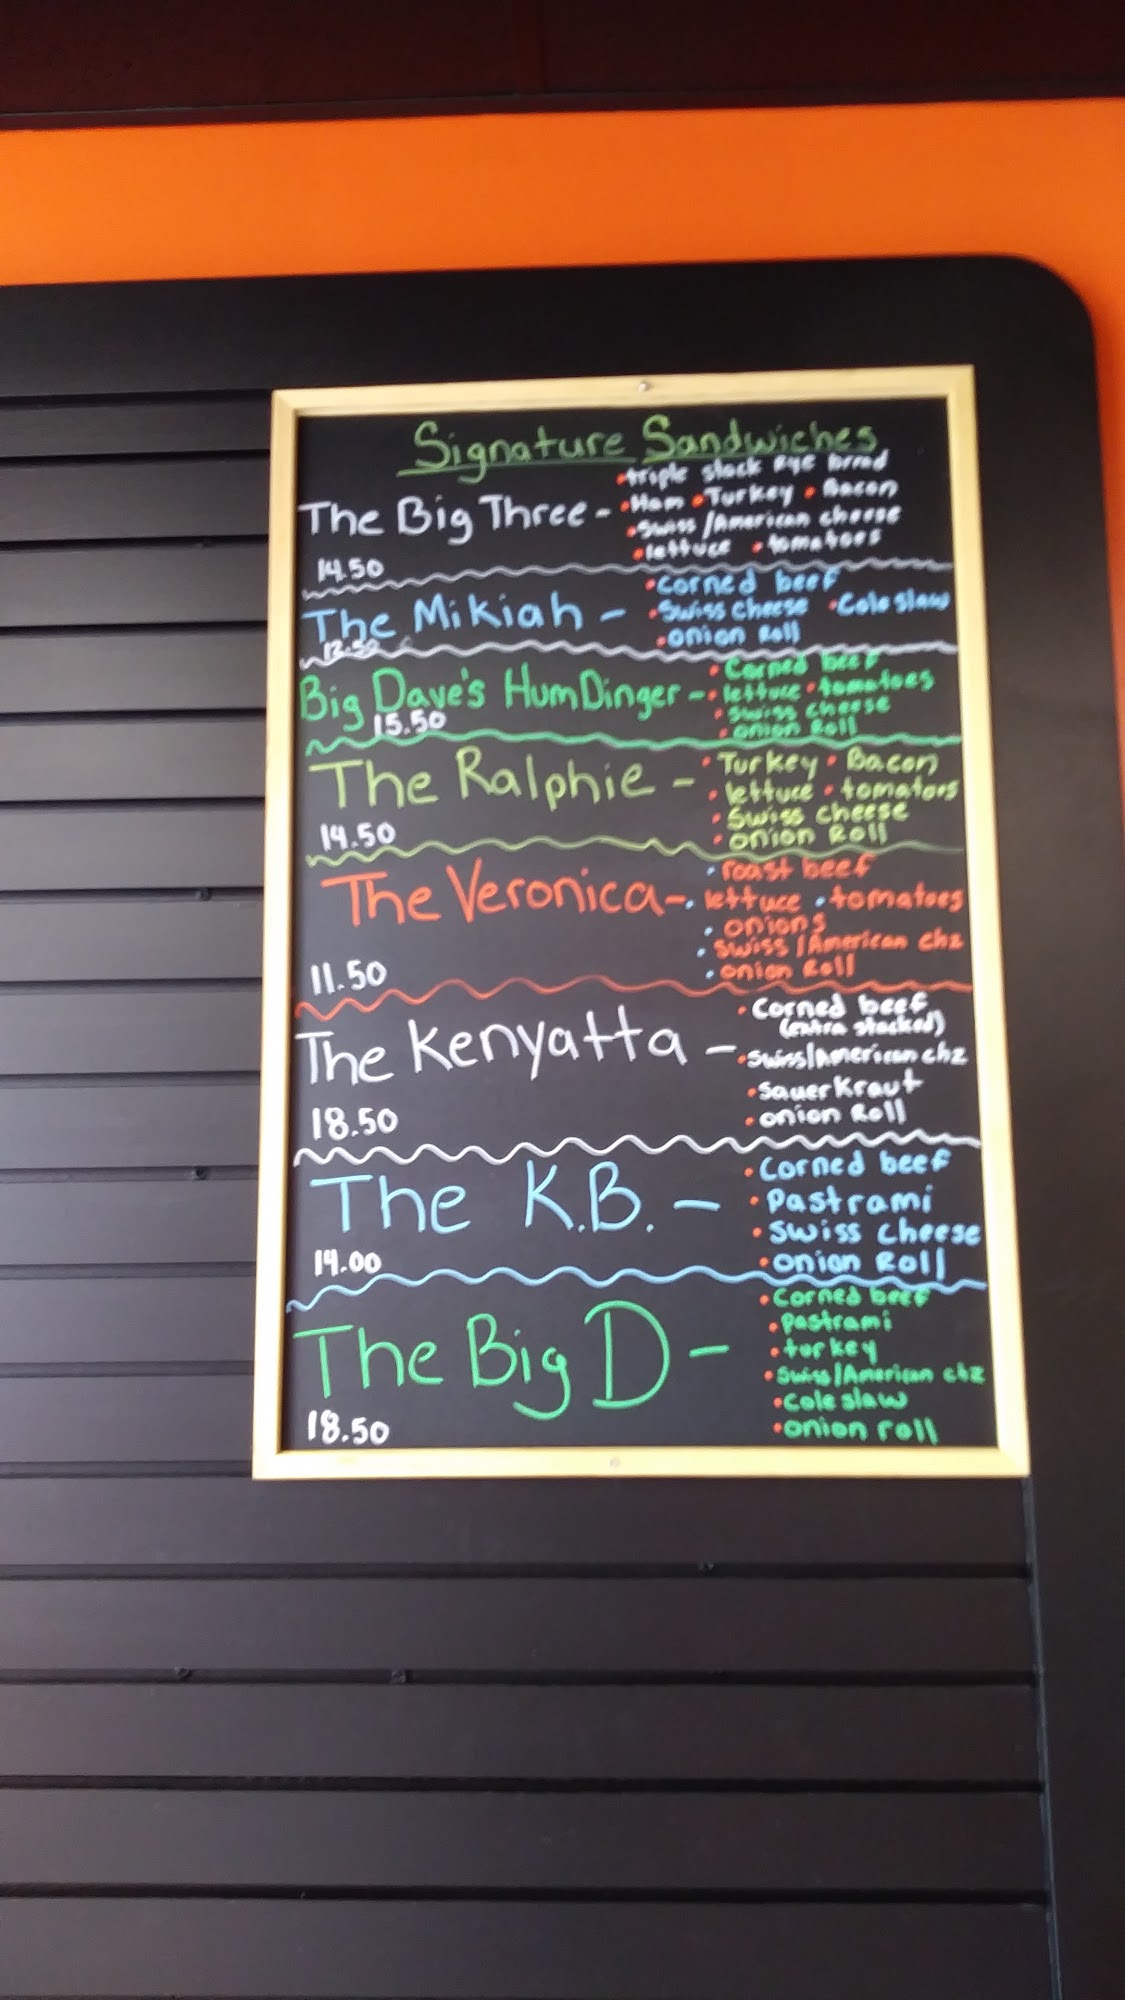 Signature Sandwiches
The Big Three - • triple stack Rye bread
• Ham • Turkey • Bacon
• Swiss/American cheese
• lettuce • tomatoes
14.50
The Mikiah - • Corned beef
• Swiss cheese • Cole slaw
• onion Roll
Big Dave's HumDinger - • Corned beef
• lettuce • tomatoes
• Swiss cheese
• onion Roll
15.50
The Ralphie - • Turkey • Bacon
• lettuce • tomatoes
• Swiss cheese
• onion Roll
14.50
The Veronica - • roast beef
• lettuce • tomatoes
• onions
• Swiss/American chz
• onion Roll
11.50
The Kenyatta - • Corned beef
(extra stacked)
• Swiss/American chz
• Sauer Kraut
• onion Roll
18.50
The K.B. - • Corned beef
• Pastrami
• Swiss cheese
• onion Roll
14.00
The Big D - • Corned beef
• pastrami
• turkey
• Swiss/American chz
• Cole slaw
• onion roll
18.50